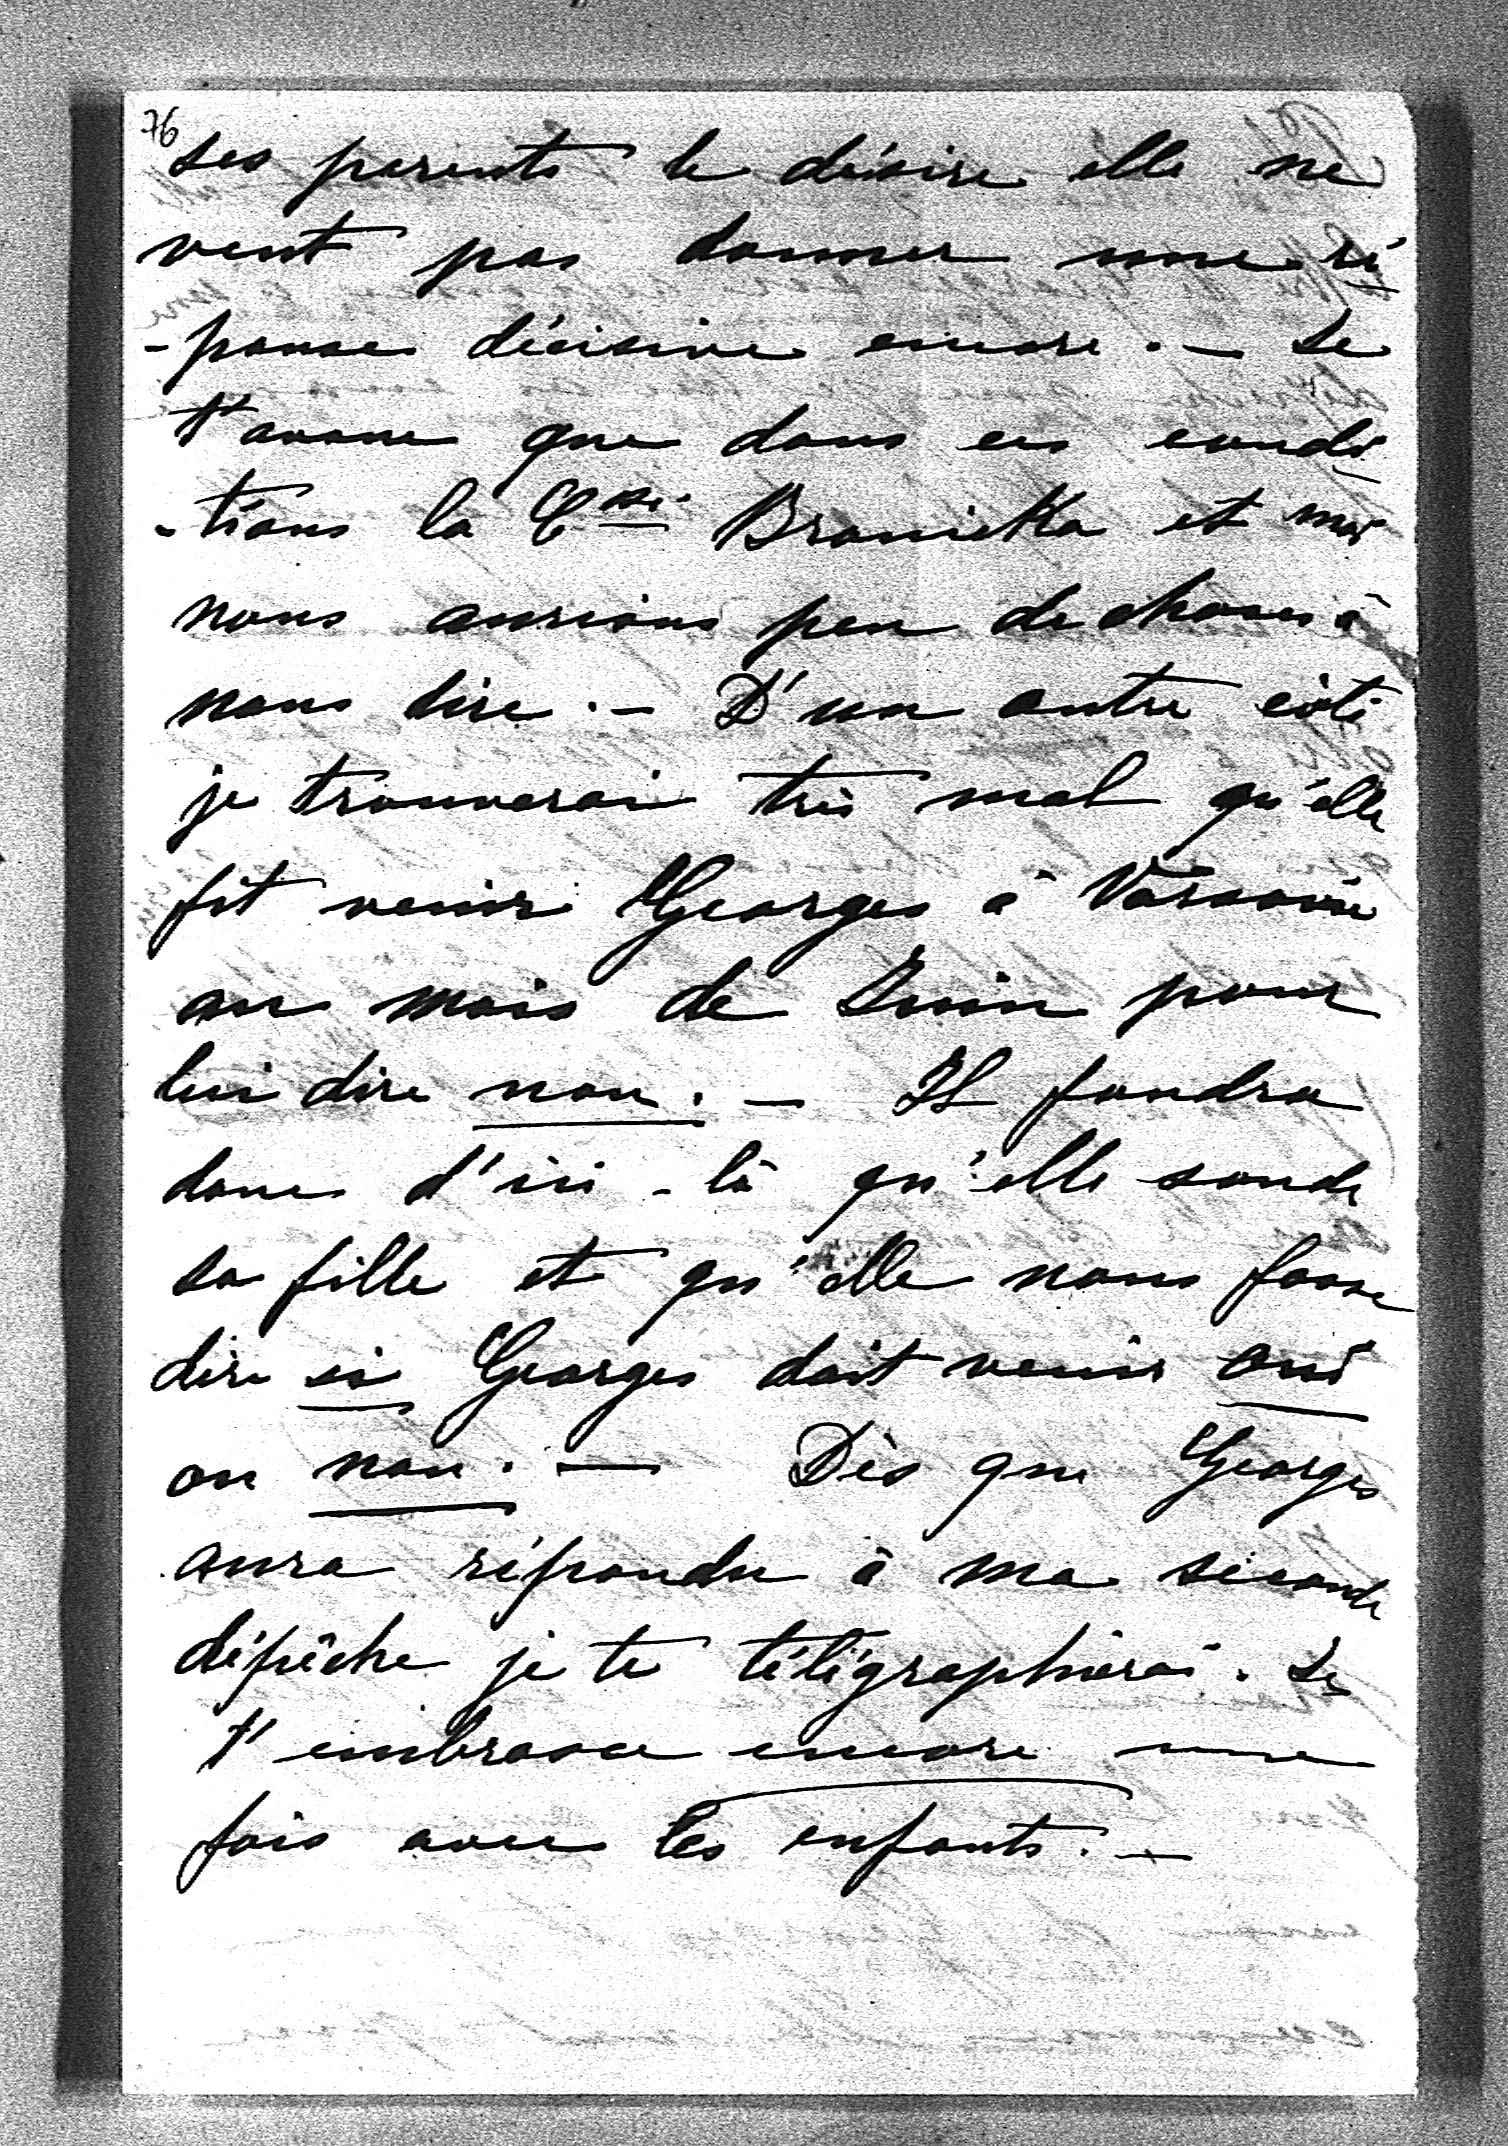 76
ses parents le désire elle ne
veut pas donner une ré
-ponse décisive encore. — Je
t'avoue que dans ces condi
-tions la Csse Branicka et moi
nous aurions peu de choses à
nous dire. — D'un autre côté
je trouverais très mal qu'elle
fît venir Georges à Varsovie
au mois de Juin pour
lui dire non. — Il faudra
donc d'ici-là qu'elle sonde
sa fille et qu'elle nous fasse
dire si Georges doit venir oui
ou non. — Dès que Georges
aura répondu à ma seconde
dépêche je te télégraphierai. Je
t'embrasse encore une
fois avec les enfants. —